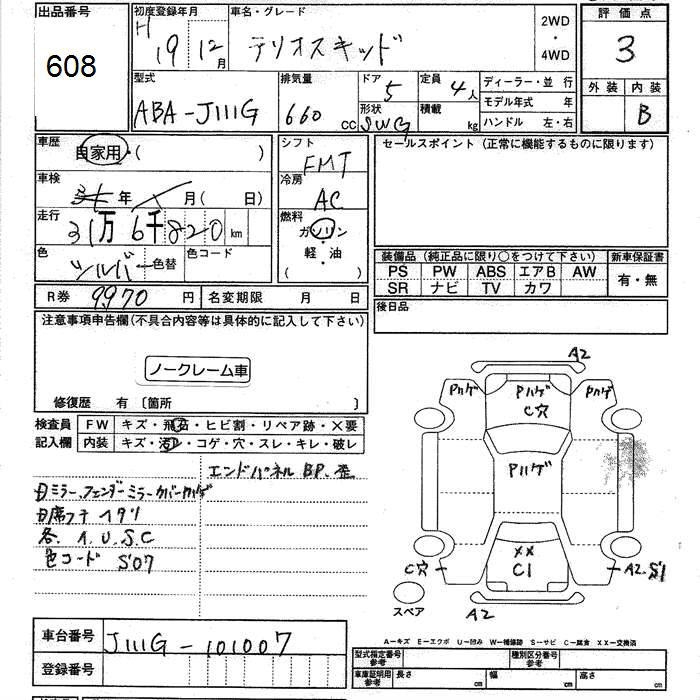 出品番号
608
初度登録年月
H19 12月
車名・グレード
テリオスキッド
2WD
・
4WD
評価点
3
外装 内装
B
型式
ABA-J111G
排気量
660 CC
ドア
5
形状
SWG
定員
4人
積載
kg
ディーラー・並行
モデル年式 年
ハンドル 左・右
車歴
自家用・( )
シフト
FMT
セールスポイント(正常に機能するものに限ります)
車検
年 月( 日)
冷房
AC
走行
31万6千820km
燃料
ガソリン
・
軽・油
( )
色
シルバー
色替
色コード
装備品(純正品に限り○をつけて下さい) 新車保証書
PS PW ABS エアB AW
SR ナビ TV カワ
有・無
R券 9970円 名変期限 月 日
後日品
注意事項申告欄(不具合内容等は具体的に記入して下さい)
ノークレーム車
修復歴 有〔箇所 〕
検査員
記入欄
FW キズ・飛石・ヒビ割・リペア跡・×要
内装 キズ・汚レ・コゲ・穴・スレ・キレ・破レ
エンドパネル BP.歪
ミラー、フェンダーミラーカバー
席フチ イタリ
各. A.U.S.C
色コード S07
A2
Pハゲ
Pハゲ
Pハゲ
C穴
Pハゲ
XX
C1
C穴
A2.S1
スペア
A2
A-キズ E-エクボ U-凹み W-補修跡 S-サビ C-腐食 XX-交換済
車台番号 J111G-101007
登録番号
型式指定番号
参考
種別区分番号
参考
車庫証明用
参考
長さ cm
幅 cm
高さ cm